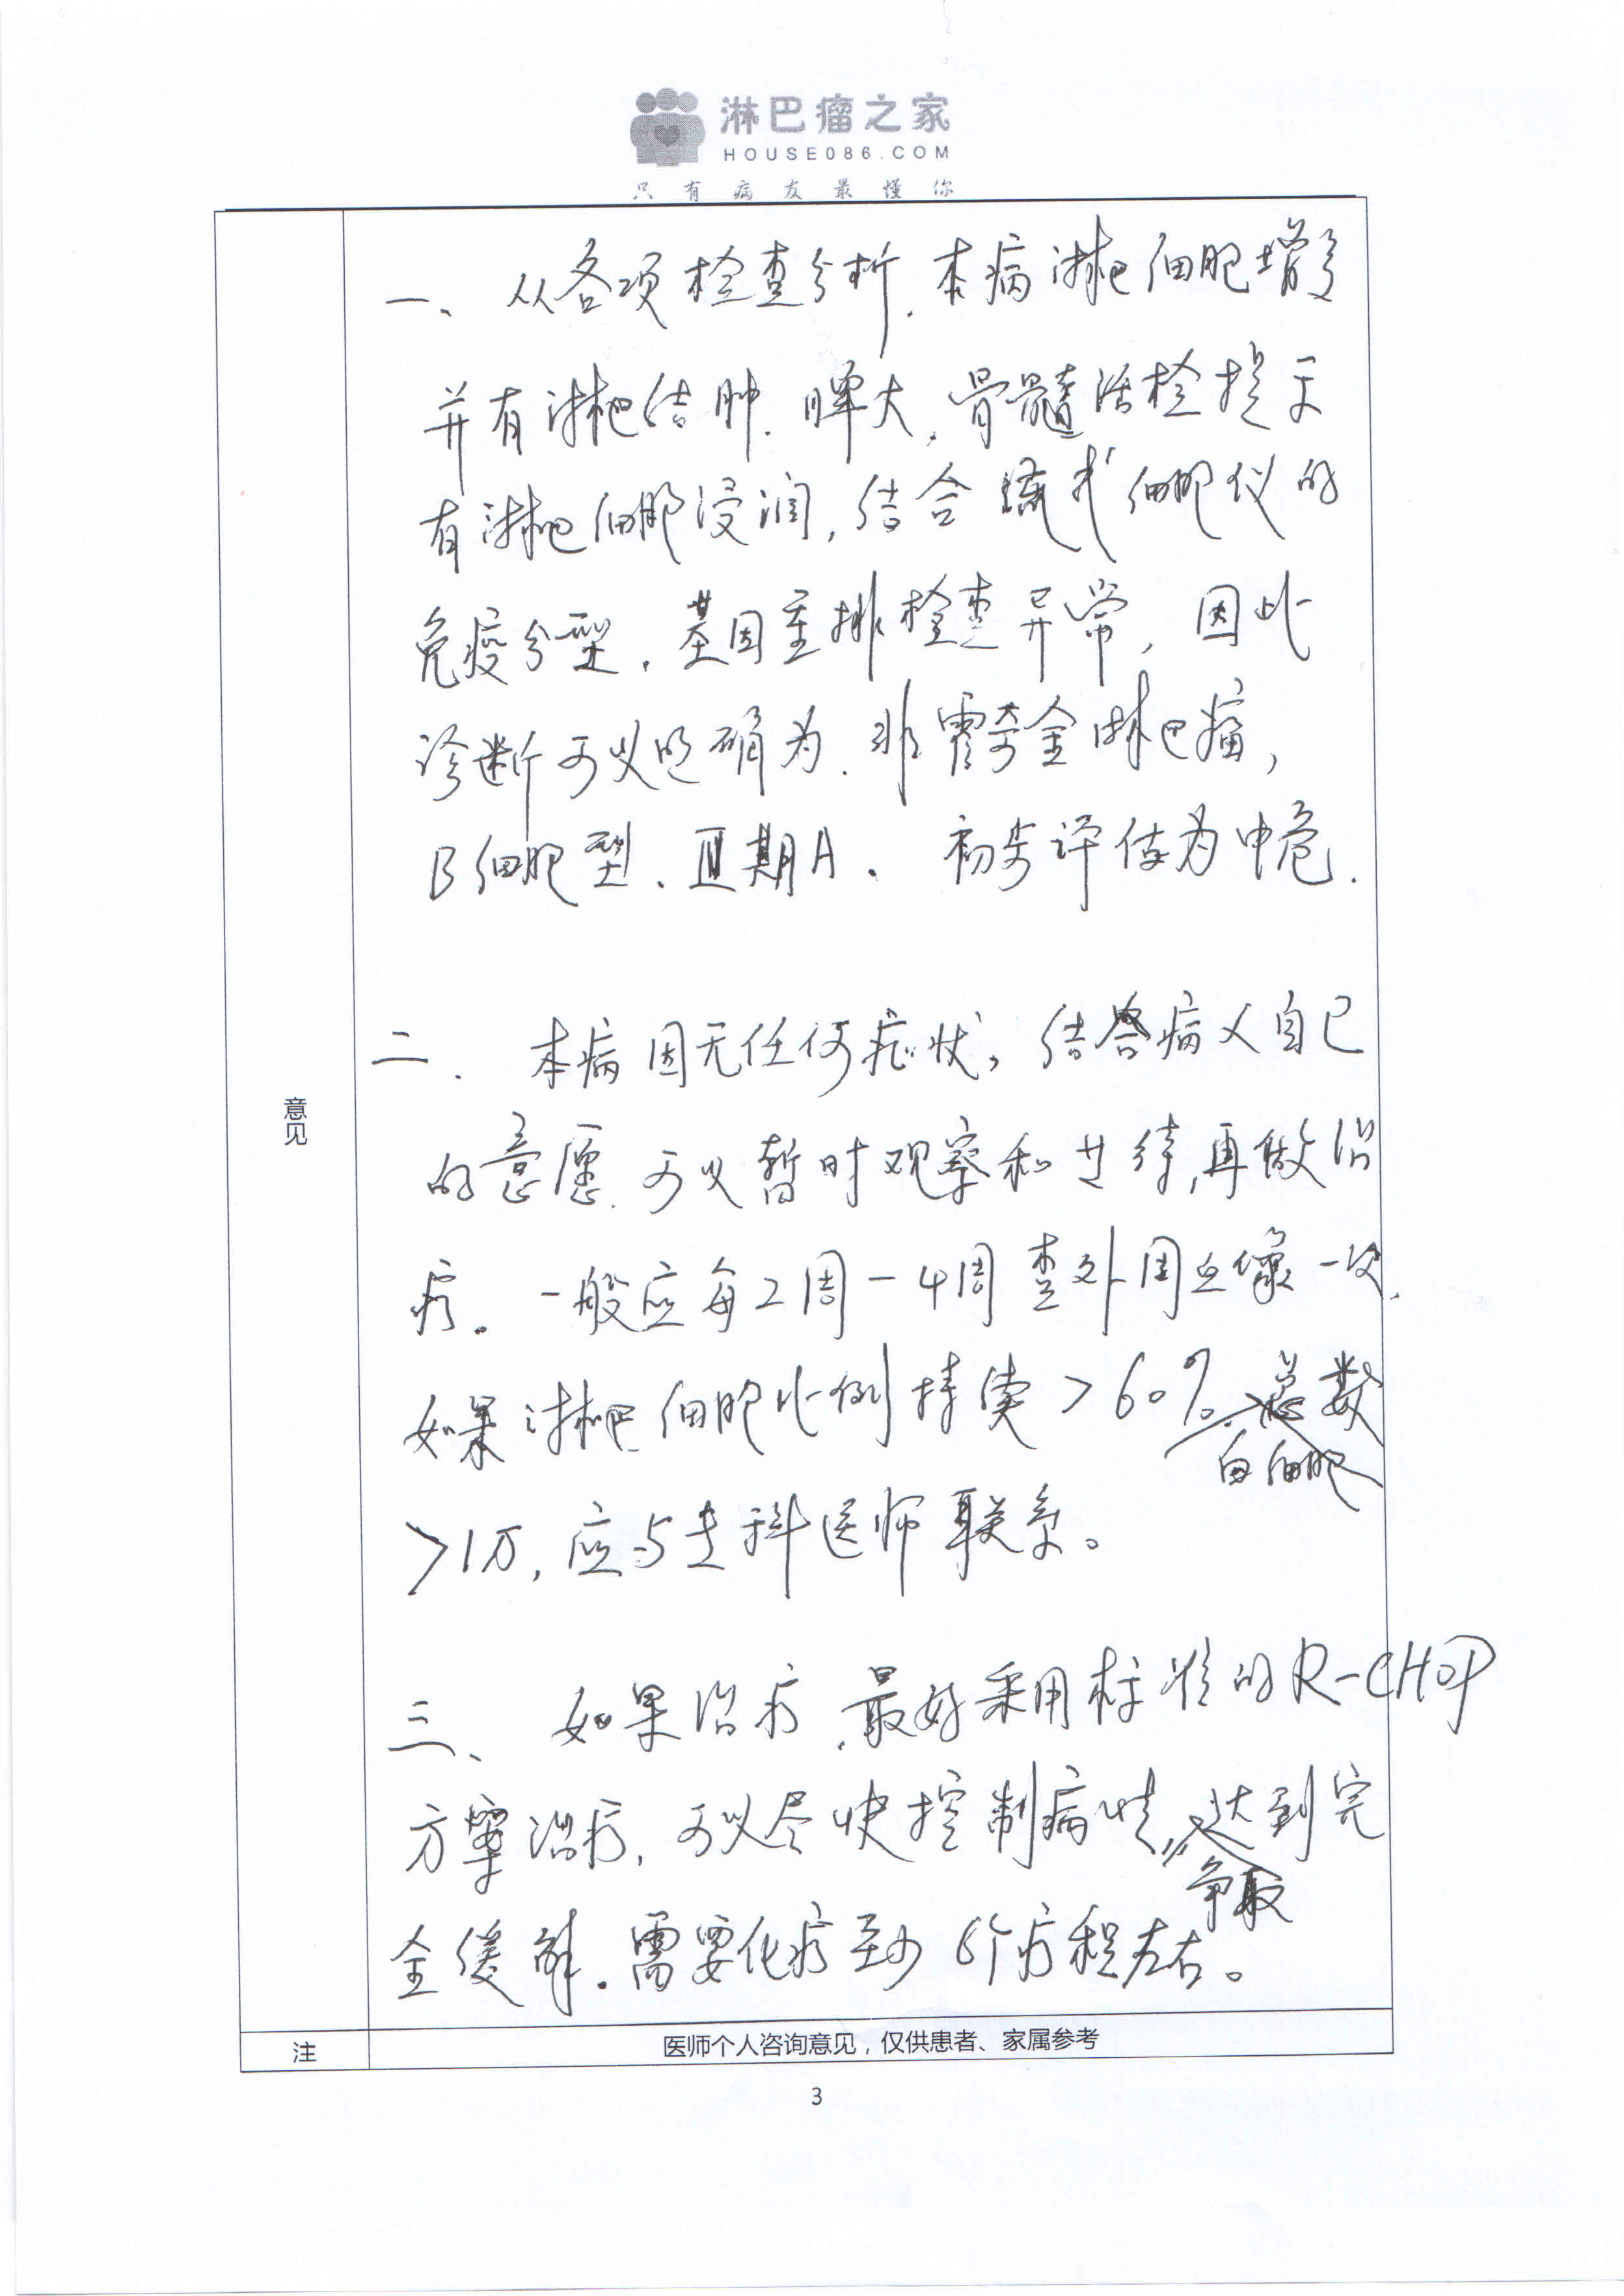 淋巴瘤之家
HOUSE086.COM
只有病友最懂你
一、从各项检查分析.本病淋巴细胞增多
并有淋巴结肿.脾大.骨髓活检提示
有淋巴细胞浸润,结合流式细胞仪的
免疫分型.基因重排检查异常,因此
诊断可以明确为.非霍奇金淋巴瘤,
B细胞型.期A.初步评估为中危.
二.本病因无任何症状,结合病人自己
的意愿.可以暂时观察和等待,再做治
疗.一般应每2周-4周查外周血像一次.
如果淋巴细胞比例持续>60%.白细胞总数
>1万,应与专科医师联系。
三、如果治疗.最好采用标准的R-CHOP
方案治疗,可以尽快控制病情,争取达到完
全缓解.需要化疗至少6个疗程左右。
意见
注
医师个人咨询意见,仅供患者、家属参考
3